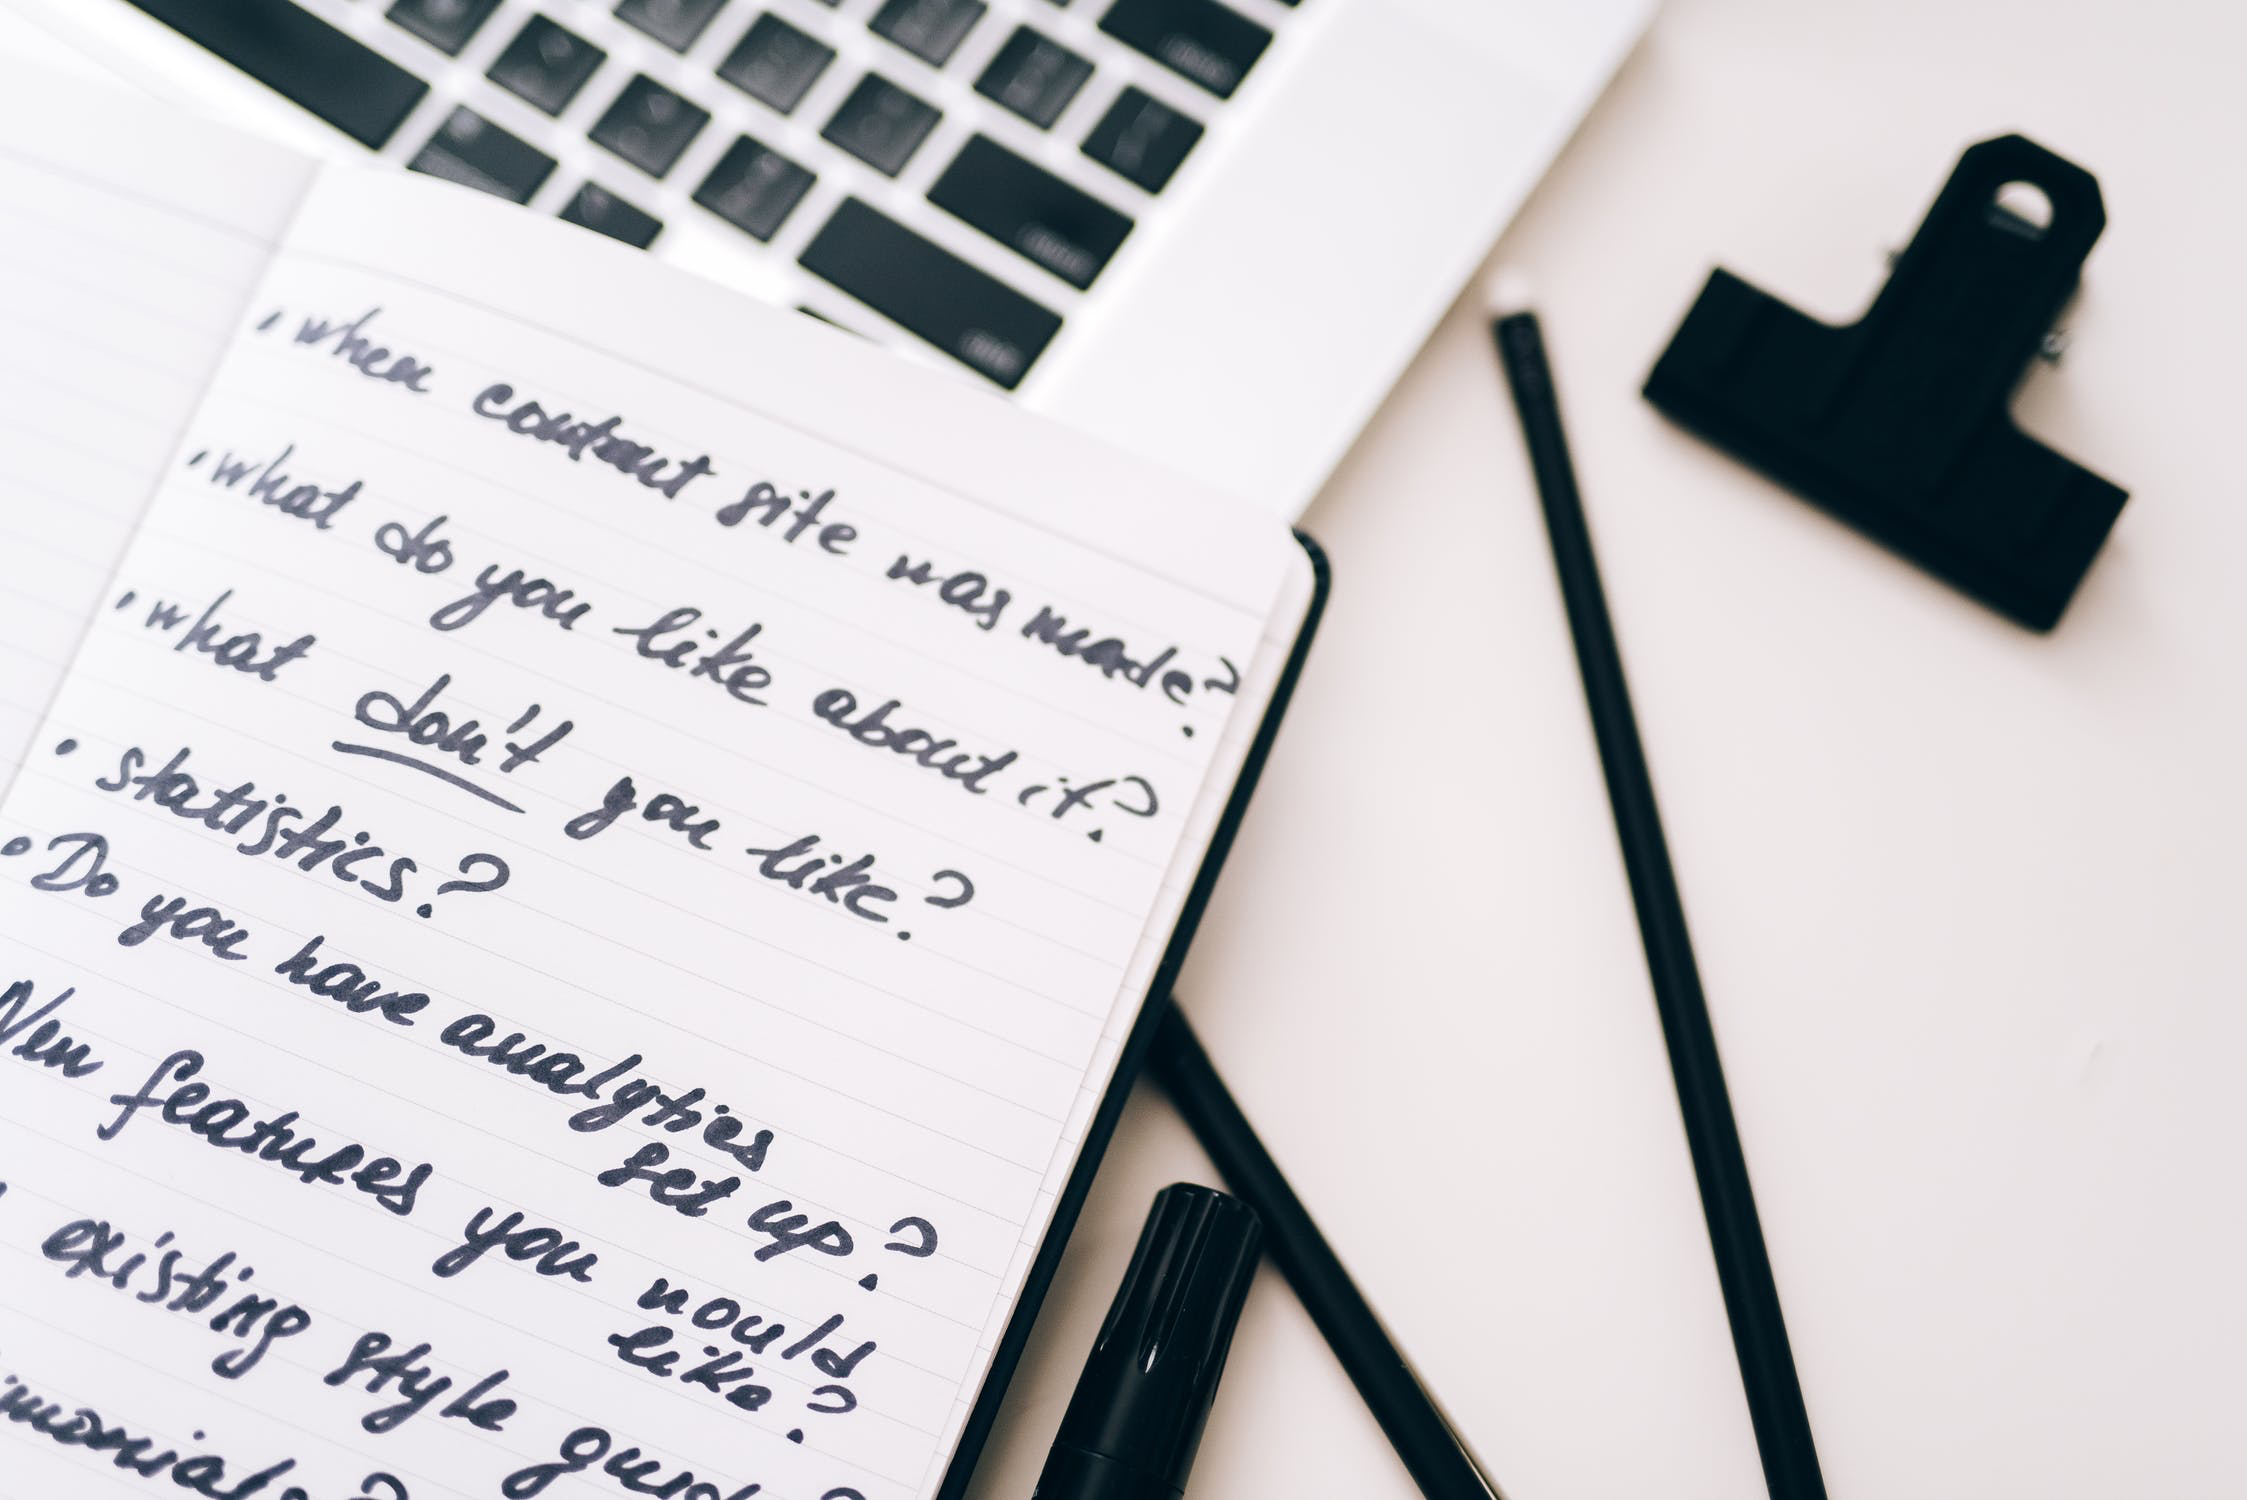 • when content site was made?
• what do you like about it?
• what don't you like?
• statistics?
• Do you have analytics
set up?
New features you would
like?
existing style guide?